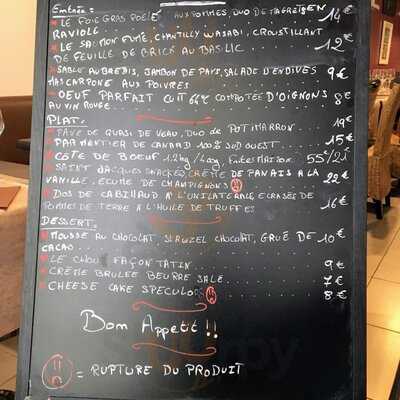 Entrée :
LE FOIE GRAS POÊLÉ AUX POMMES, DUO DE MAGRET EN 14€
RAVIOLE
LE SAUMON FUMÉ, CHANTILLY WASABI, CROUSTILLANT 12€
DE FEUILLE DE BRICK AU BASILIC
SABLÉ AU BREBIS, JAMBON DE PAYS, SALADE D'ENDIVES 9€
MASCARPONE AUX POIVRES
OEUF PARFAIT CUIT 64°C COMPOTÉE D'OIGNONS 8€
AU VIN ROUGE
PLAT.
PAVÉ DE QUASI DE VEAU, DUO DE POTIMARRON 19€
PARMENTIER DE CANARD 100% SUD OUEST 15€
CÔTE DE BOEUF 1.2kg
SAINT JACQUES SNACKÉE, CRÈME DE PANAIS A LA 22€
VANILLE, ÉCUME DE CHAMPIGNONS
DOS DE CABILLAUD A L'UNILATERALE ECRASÉE DE 16€
POMMES DE TERRE A L'HUILE DE TRUFFES
DESSERT.
MOUSSE AU CHOCOLAT, CHOCOLAT, GRUÉ DE 10€
CACAO
LE CHOU FAÇON TATIN 9€
CRÈME BRULÉE BEURRE SALÉ 7€
CHEESE CAKE SPECULOOS 8€
Bom Appetit !!
= RUPTURE DU PRODUIT